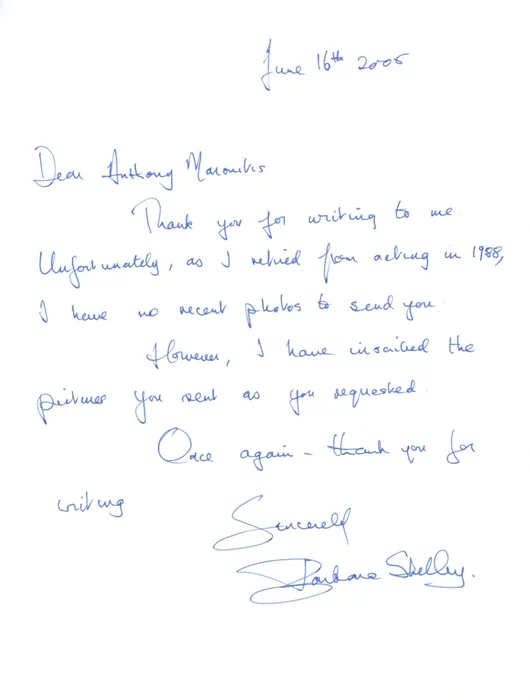 June 16th 2005
Dear Anthony
Thank you for writing to me.
Unfortunately, as I retired from acting in 1988,
I have no recent photos to send you.
However, I have inscribed the
pictures you sent as you requested.
Once again - thank you for
writing
Sincerely
Barbara Shelley.